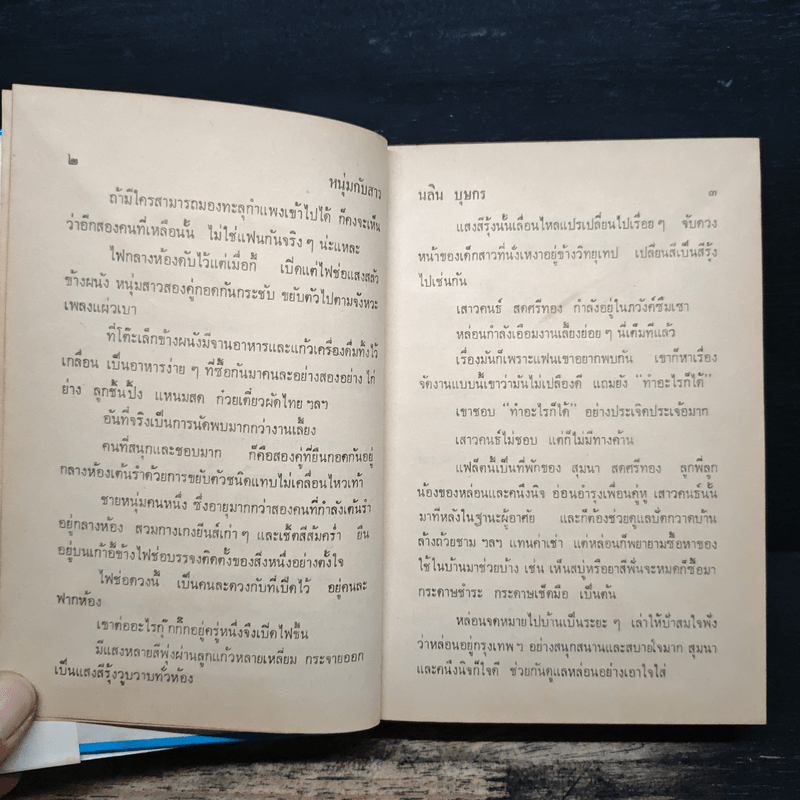 ๒
หนุ่มกับสาว
ถ้ามีใครสามารถมองทะลุกำแพงเข้าไปได้ ก็คงจะเห็น
ว่าอีกสองคนที่เหลือนั้น ไม่ใช่แฟนกันจริง ๆ น่ะแหละ
ไฟกลางห้องดับไว้แต่เมื่อกี้ เปิดแต่ไฟช่อแสงสลัว
ข้างผนัง หนุ่มสาวสองคู่กอดกันกระชับ ขยับตัวไปตามจังหวะ
เพลงแผ่วเบา
ที่โต๊ะเล็กข้างผนังมีจานอาหารและแก้วเครื่องดื่มทิ้งไว้
เกลื่อน เป็นอาหารง่าย ๆ ที่ซื้อกันมาคนละอย่างสองอย่าง ไก่
ย่าง ลูกชิ้นปิ้ง แหนมสด ก๋วยเตี๋ยวผัดไทย ฯลฯ
อันที่จริงเป็นการนัดพบมากกว่างานเลี้ยง
คนที่สนุกและชอบมาก ก็คือสองคู่ที่ยืนกอดกันอยู่
กลางห้องเต้นรำด้วยการขยับตัวชนิดแทบไม่เคลื่อนไหวเท้า
ชายหนุ่มคนหนึ่ง ซึ่งอายุมากกว่าสองคนที่กำลังเต้นรำ
อยู่กลางห้อง สวมกางเกงยีนส์เก่า ๆ และเชิ้ตสีส้มคร่ำ ยืน
อยู่บนเก้าอี้ข้างไฟช่อบรรจงติดตั้งของสิ่งหนึ่งอย่างตั้งใจ
ไฟช่อดวงนี้ เป็นคนละดวงกับที่เปิดไว้ อยู่คนละ
ฟากห้อง
เขาต่ออะไรกุ๊กกิ๊กอยู่ครู่หนึ่งจึงเปิดไฟขึ้น
มีแสงหลายสีพุ่งผ่านลูกแก้วหลายเหลี่ยม กระจายออก
เป็นแสงสีรุ้งวูบวาบทั่วห้อง
นลิน บุษกร
๓
แสงสีรุ้งนั้นเลื่อนไหลแปรเปลี่ยนไปเรื่อย ๆ จับดวง
หน้าของเด็กสาวที่นั่งเหงาอยู่ข้างวิทยุเทป เปลี่ยนสีเป็นสีรุ้ง
ไปเช่นกัน
เสาวคนธ์ สดศรีทอง กำลังอยู่ในภวังค์ซึมเซา
หล่อนกำลังเอือมงานเลี้ยงย่อย ๆ นี่เต็มทีแล้ว
เรื่องมันก็เพราะแฟนเขาอยากพบกัน เขาก็หาเรื่อง
จัดงานแบบนี้เขาว่ามันไม่เปลืองดี แถมยัง “ทำอะไรก็ได้”
เขาชอบ “ทำอะไรก็ได้” อย่างประเจิดประเจ้อมาก
เสาวคนธ์ไม่ชอบ แต่ก็ไม่มีทางค้าน
แฟล็ตนี้เป็นที่พักของ สุมนา สดศรีทอง ลูกพี่ลูก
น้องของหล่อนและคนึงนิจ อ่อนอำรุงเพื่อนคู่หู เสาวคนธ์นั้น
มาทีหลังในฐานะผู้อาศัย และก็ต้องช่วยดูแลปัดกวาดบ้าน
ล้างถ้วยชาม ฯลฯ แทนค่าเช่า แต่หล่อนก็พยายามซื้อหาของ
ใช้ในบ้านมาช่วยบ้าง เช่น เห็นสบู่หรือยาสีฟันจะหมดก็ซื้อมา
กระดาษชำระ กระดาษเช็ดมือ เป็นต้น
หล่อนจดหมายไปบ้านเป็นระยะ ๆ เล่าให้ป้าสมใจฟัง
ว่าหล่อนอยู่กรุงเทพ ฯ อย่างสนุกสนานและสบายใจมาก สุมนา
และคนึงนิจก็ใจดี ช่วยกันดูแลหล่อนอย่างเอาใจใส่